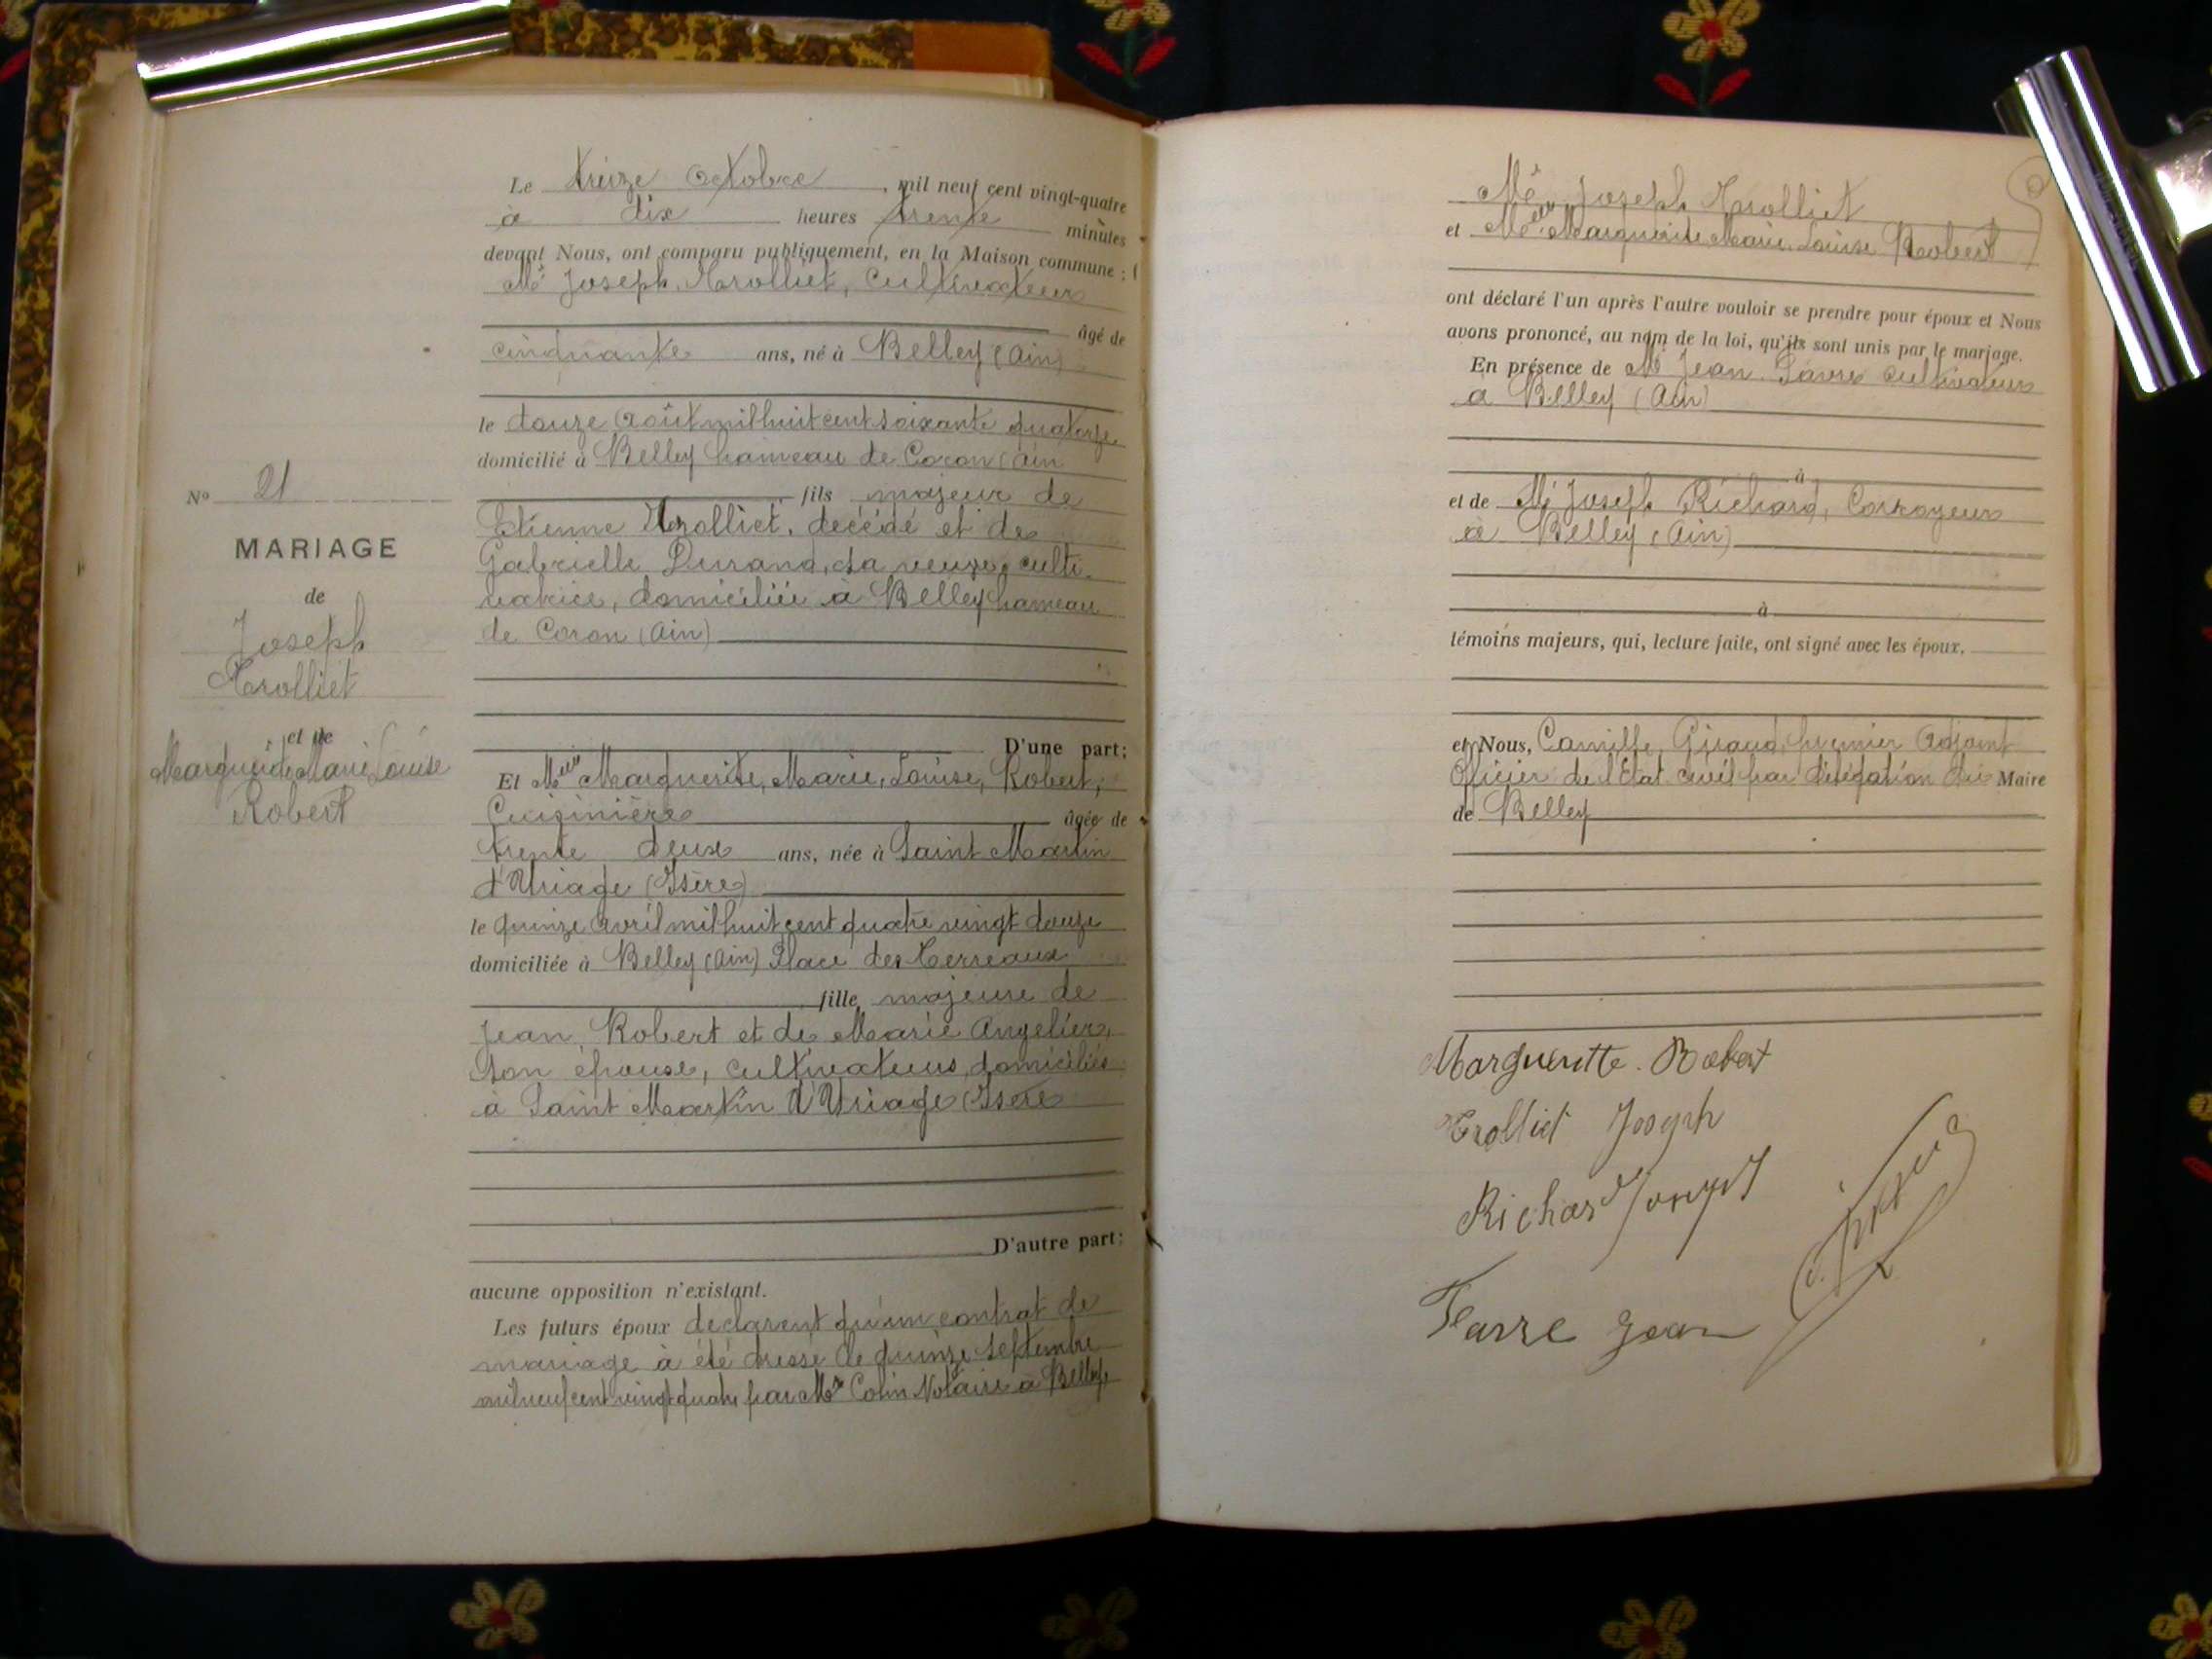 Le treize Octobre, mil neuf cent vingt-quatre
à dix heures trente minutes
devant Nous, ont comparu publiquement, en la Maison commune :
Mr Joseph Trolliet, Cultivateur
âgé de
cinquante ans, né à Belley (Ain)
le douze Août mil huit cent soixante quatorze
domicilié à Belley hameau de Coron (Ain
fils majeur de
Etienne Trolliet, décédé et de
Gabrielle Durand, sa veuve, culti-
vatrice, domiciliée à Belley hameau
de Coron (Ain)
D'une part;
Et Melle Marguerite, Marie, Louise, Robert,
Cuisinière âgée de
trente deux ans, née à Saint Martin
d'Uriage (Isère)
le quinze avril mil huit cent quatre vingt douze
domiciliée à Belley (Ain) Place des Terreaux
fille majeure de
Jean Robert et de Marie Angelier,
son épouse, cultivateurs, domiciliés
à Saint Martin d'Uriage (Isère
D'autre part;
aucune opposition n'existant.
Les futurs époux declarent qu'un contrat de
mariage à été dressé le quinze septembre
mil neuf cent vingt quatre par Me Colin Notaire à Belley
No 21
MARIAGE
de
Joseph
Trolliet
et de
Marguerite Marie Louise
Robert
Mr Joseph Trolliet
et Melle Marguerite, Marie, Louise Robert
ont déclaré l'un après l'autre vouloir se prendre pour époux et Nous
avons prononcé, au nom de la loi, qu'ils sont unis par le mariage.
En présence de Mr Jean cultivateur
a Belley (Ain)
à
et de Mr Joseph Richard, Corroyeur
à Belley (Ain)
à
témoins majeurs, qui, lecture faite, ont signé avec les époux,
et Nous, Camille Giraud, premier adjoint
Officier de l'Etat civil par délégation du Maire
de Belley
Margueritte. Robert
Trolliet Joseph
Richard Joseph
Jean